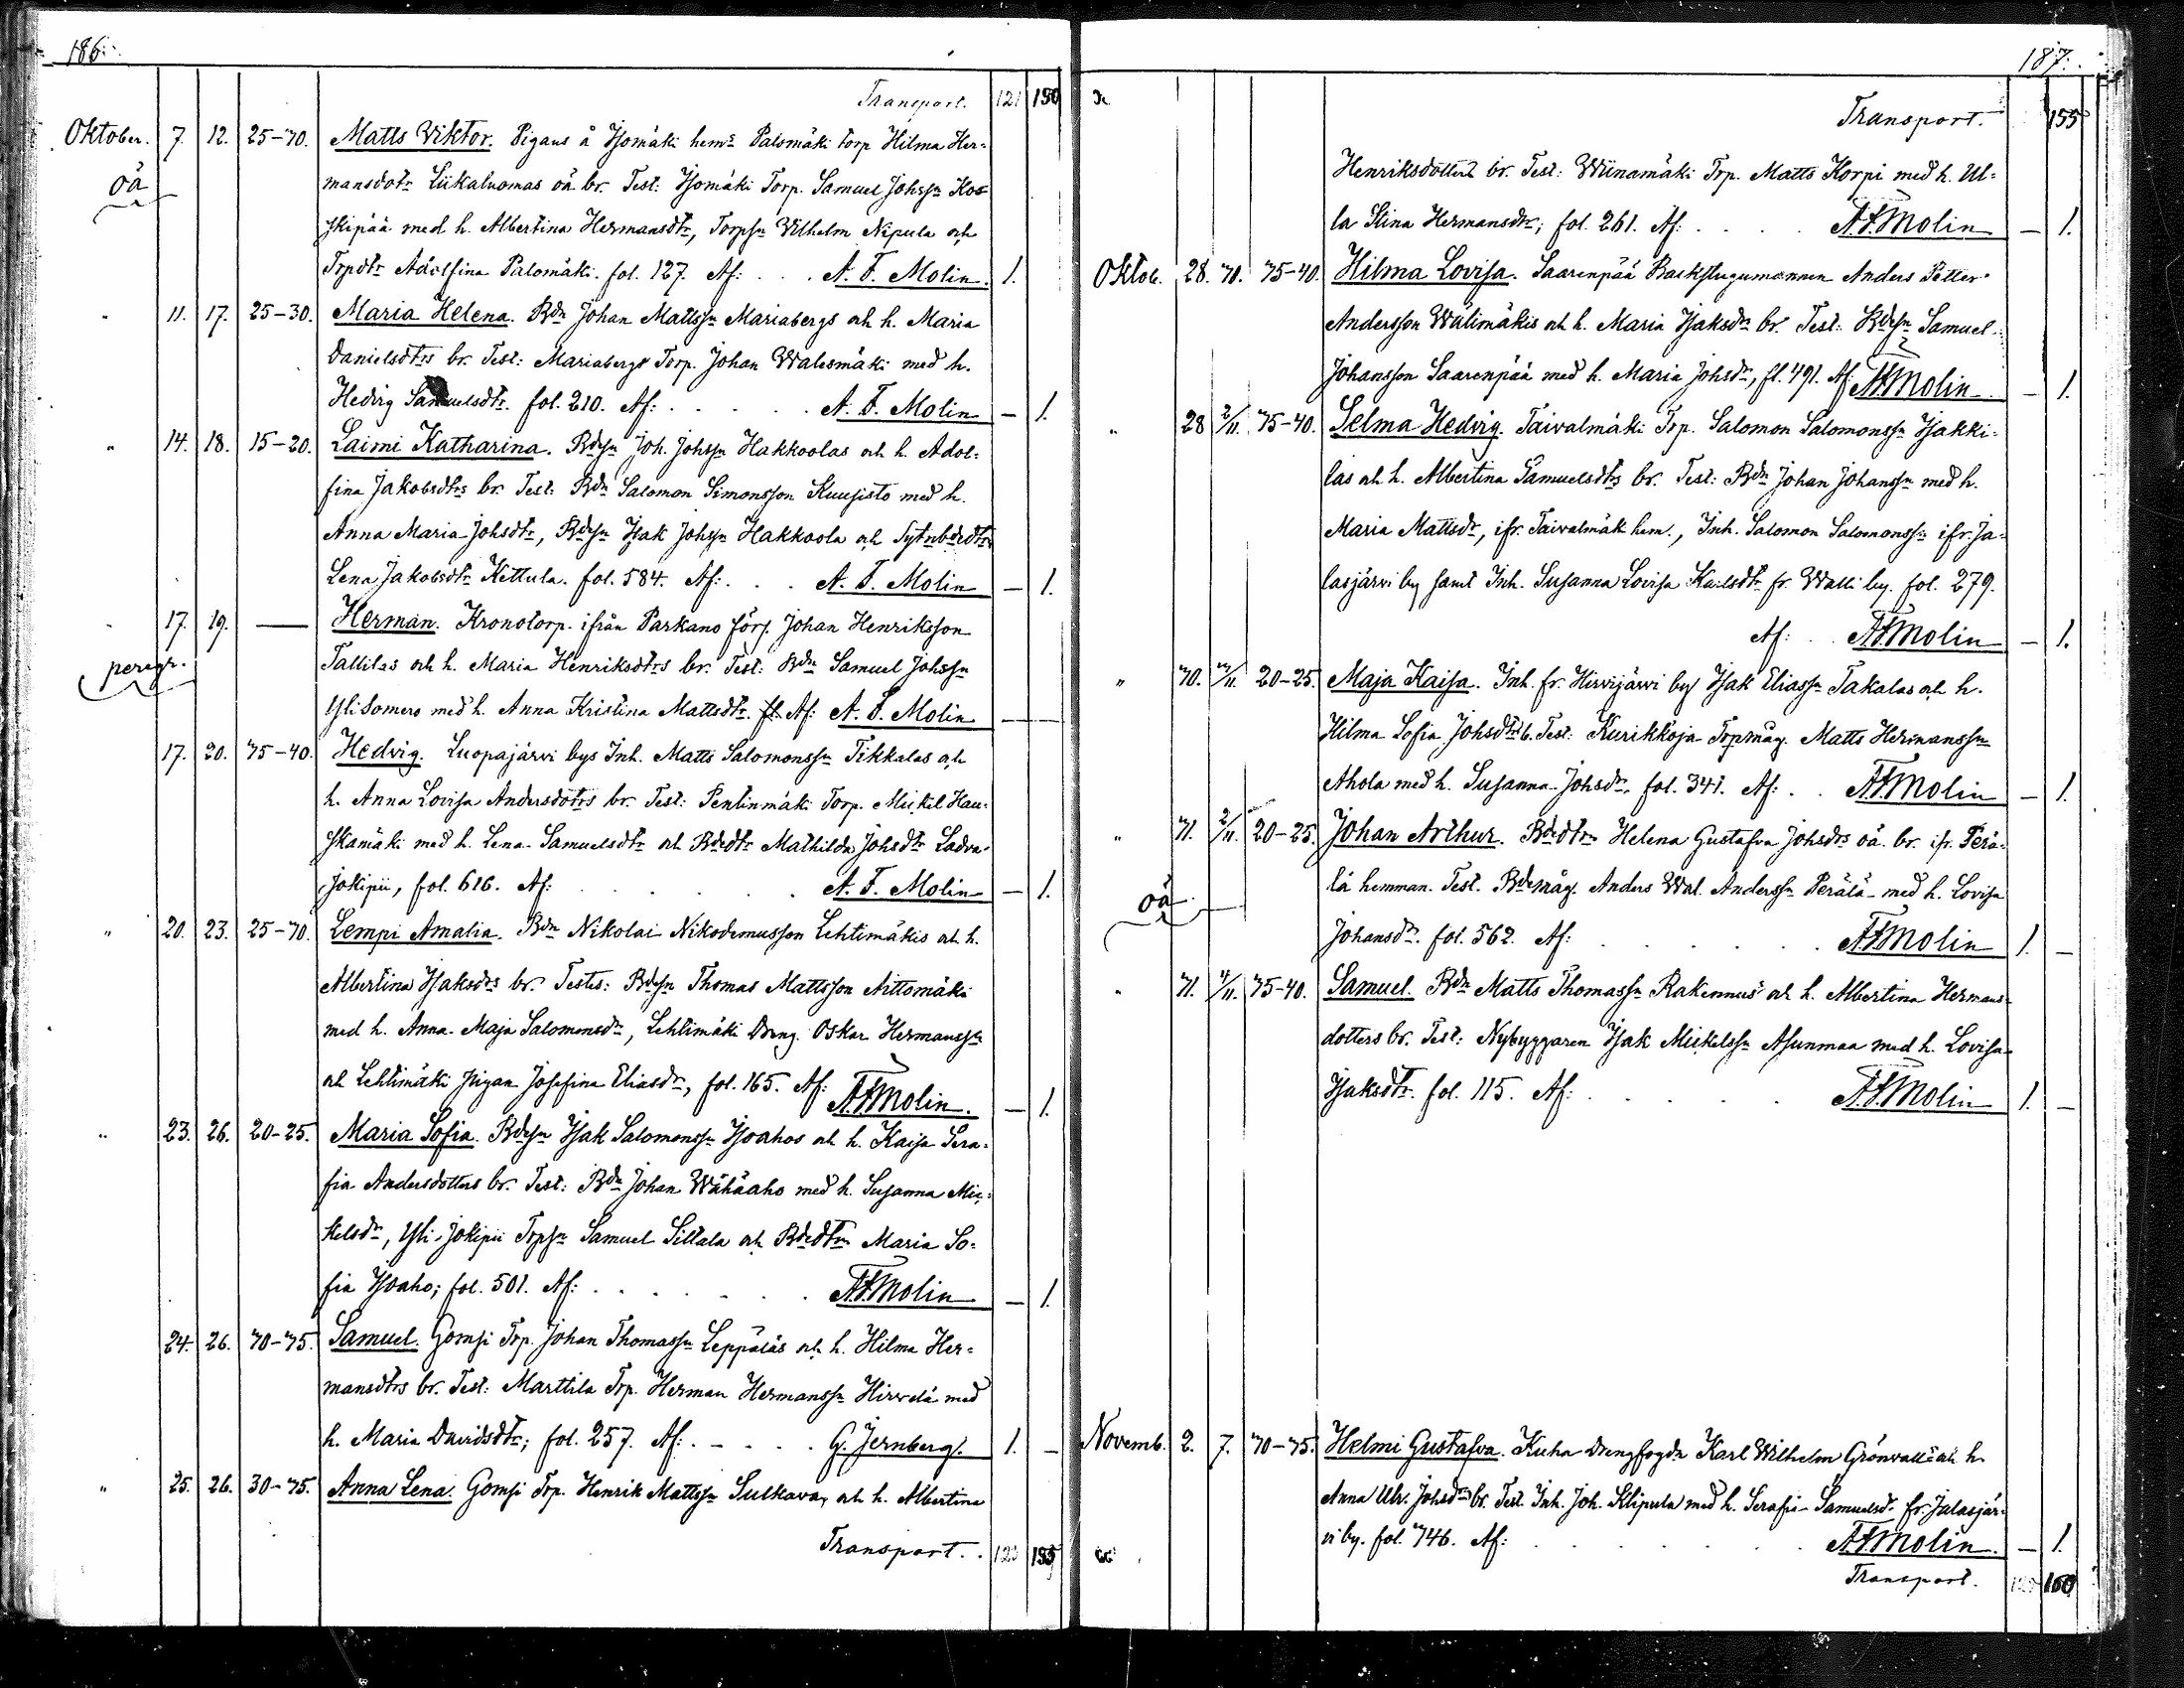 186.
Transport. 121 150
Oktober. 7. 12. 25-70. Matts Viktor. Pigans å Isomäki hems Palomäki torp Hilma Her-
oä mansdotr Liikaluomas oä br. Test: Isomäki Torp. Samuel Johssn Kos-
kipää med h. Albertina Hermansdtr, Torpsn Wilhelm Nipula och
Trpdtr Adolfina Palomäki. fol. 127. Af: . . . A. F. Molin. 1.
" 11. 17. 25-30. Maria Helena. Bdn Johan Mattssn Mariabergs och h. Maria
Danielsdtrs br. Test: Mariabergs Torp. Johan Walesmäki med h.
Hedvig Samuelsdtr. fol. 210. Af: . . . . . A. F. Molin — 1.
" 14. 18. 15-20. Laimi Katharina. Bdesn Joh. Johssn Hakkoolas och h. Adol-
fina Jakobsdtrs br. Test: Bdn Salomon Simonsson Kuusisto med h.
Anna Maria Johsdtr, Bdesn Isak Johssn Hakkoola och Sytnbdedtr
Lena Jakobsdtr Kettula. fol. 584. Af: . . . A. F. Molin — 1.
" 17. 19. — Herman. Kronotorp. ifrån Parkano förs. Johan Henriksson
peregr. Tallilas och h. Maria Henriksdtrs br. Test: Bdn Samuel Johssn
Yli Somero med h. Anna Kristina Mattsdtr. fl. Af: A. F. Molin — —
17. 20. 75-40. Hedvig. Luopajärvi bys Inh. Matts Salomonssn Tikkalas och
h. Anna Lovisa Andersdotrs br. Test: Pentinmäki Torp. Mickel Hau-
skamäki med h. Lena Samuelsdtr och Bdedtr Mathilda Johsdtr Ladva-
Jokipii, fol. 616. Af: . . . . . A. F. Molin — 1.
" 20. 23. 25-70. Lempi Amalia. Bdn Nikolai Nikodemusson Lehtimäkis och h.
Albertina Isaksdrs br. Testes: Bdesn Thomas Mattsson Aittomäki
med h. Anna Maja Salomonsdr, Lehtimäki Dreng. Oskar Hermanssn
och Lehtimäki pigan Josefina Eliasdr, fol. 165. Af: A. F. Molin. — 1.
" 23. 26. 20-25. Maria Sofia. Bdesn Isak Salomonssn Isoahos och h. Kaisa Sera-
fia Andersdotters br. Test: Bdn Johan Wähäaho med h. Susanna Mic-
kelsdr, Yli-Jokipii Trpsn Samuel Sillala och Bdedtrn Maria So-
fia Isoaho; fol. 501. Af: . . . . . . A. F. Molin — 1.
24. 26. 70-75. Samuel. Gomsi Trp. Johan Thomassn Leppäläs och h. Hilma Her-
mansdtrs br. Test: Marttila Trp. Herman Hermanssn Hirvelä med
h. Maria Davidsdtr; fol. 257. Af: . . . . G. Jernberg. 1. —
" 25. 26. 30-75. Anna Lena. Gomsi Trp. Henrik Mattssn Sulkava, och h. Albertina
Transport. . 155
187.
Transport. 155
Henriksdotters br. Test: Wiinamäki Trp. Matts Korpi med h. Ul-
la Stina Hermansdtr; fol. 261. Af: . . . . A. F. Molin — 1.
Oktob. 28. 71. 75-40. Hilma Lovisa. Saarenpää Backstugumannen Anders Petter
Andersson Wälimäkis och h. Maria Isaksdrs br. Test: Bdesn Samuel
Johansson Saarenpää med h. Maria Johsdtr, fl. 491. Af: A. F. Molin — 1.
" 28 2/11. 75-40. Selma Hedvig. Taivalmäki Trp. Salomon Salomonssn Isakki-
las och h. Albertina Samuelsdtrs br. Test: Bdn Johan Johanssn med h.
Maria Mattsdr, ifr. Taivalmäk hem., Inh. Salomon Salomonssn ifr. Ja-
lasjärvi by samt Inh. Susanna Lovisa Karlsdtr fr. Walli by. fol. 279.
Af: . . A. F. Molin — 1.
" 70. 20-25. Maja Kaisa. Inh. fr. Hirvijärvi by Isak Eliassn Takalas och h.
Hilma Sofia Johsdtrs b. Test: Kurikkoja Trpmåg. Matts Hermanssn
Ahola med h. Susanna Johsdr. fol. 341. Af: . . A. F. Molin — 1.
" 71. 2/11. 20-25. Johan Arthur. Bdedtrn Helena Gustafva Johsdrs oä. br. ifr. Perä-
oä lä hemman. Test. Bdemåg. Anders Wal. Anderssn Perälä med h. Lovisa
Johansdr. fol. 562. Af: . . . . . A. F. Molin 1. —
" 71. 75-40. Samuel. Bdn Matts Thomassn Rakennus och h. Albertina Hermans-
dotters br. Test: Nybyggaren Isak Mickelssn Asunmaa med h. Lovisa
Isaksdtr. fol. 115. Af: . . . . . A. F. Molin 1. —
Novemb. 2. 7. 70-75. Helmi Gustafva. Kuha drengfogdn Karl Wilhelm Grönvalls och h.
Anna Ulr. Johsdrs br. Test. Inh. Joh. Klipula med h. Serafia Samuelsd. fr. Jalasjär-
vi by. fol. 746. Af: . . . . . A. F. Molin. — 1.
Transport. 160